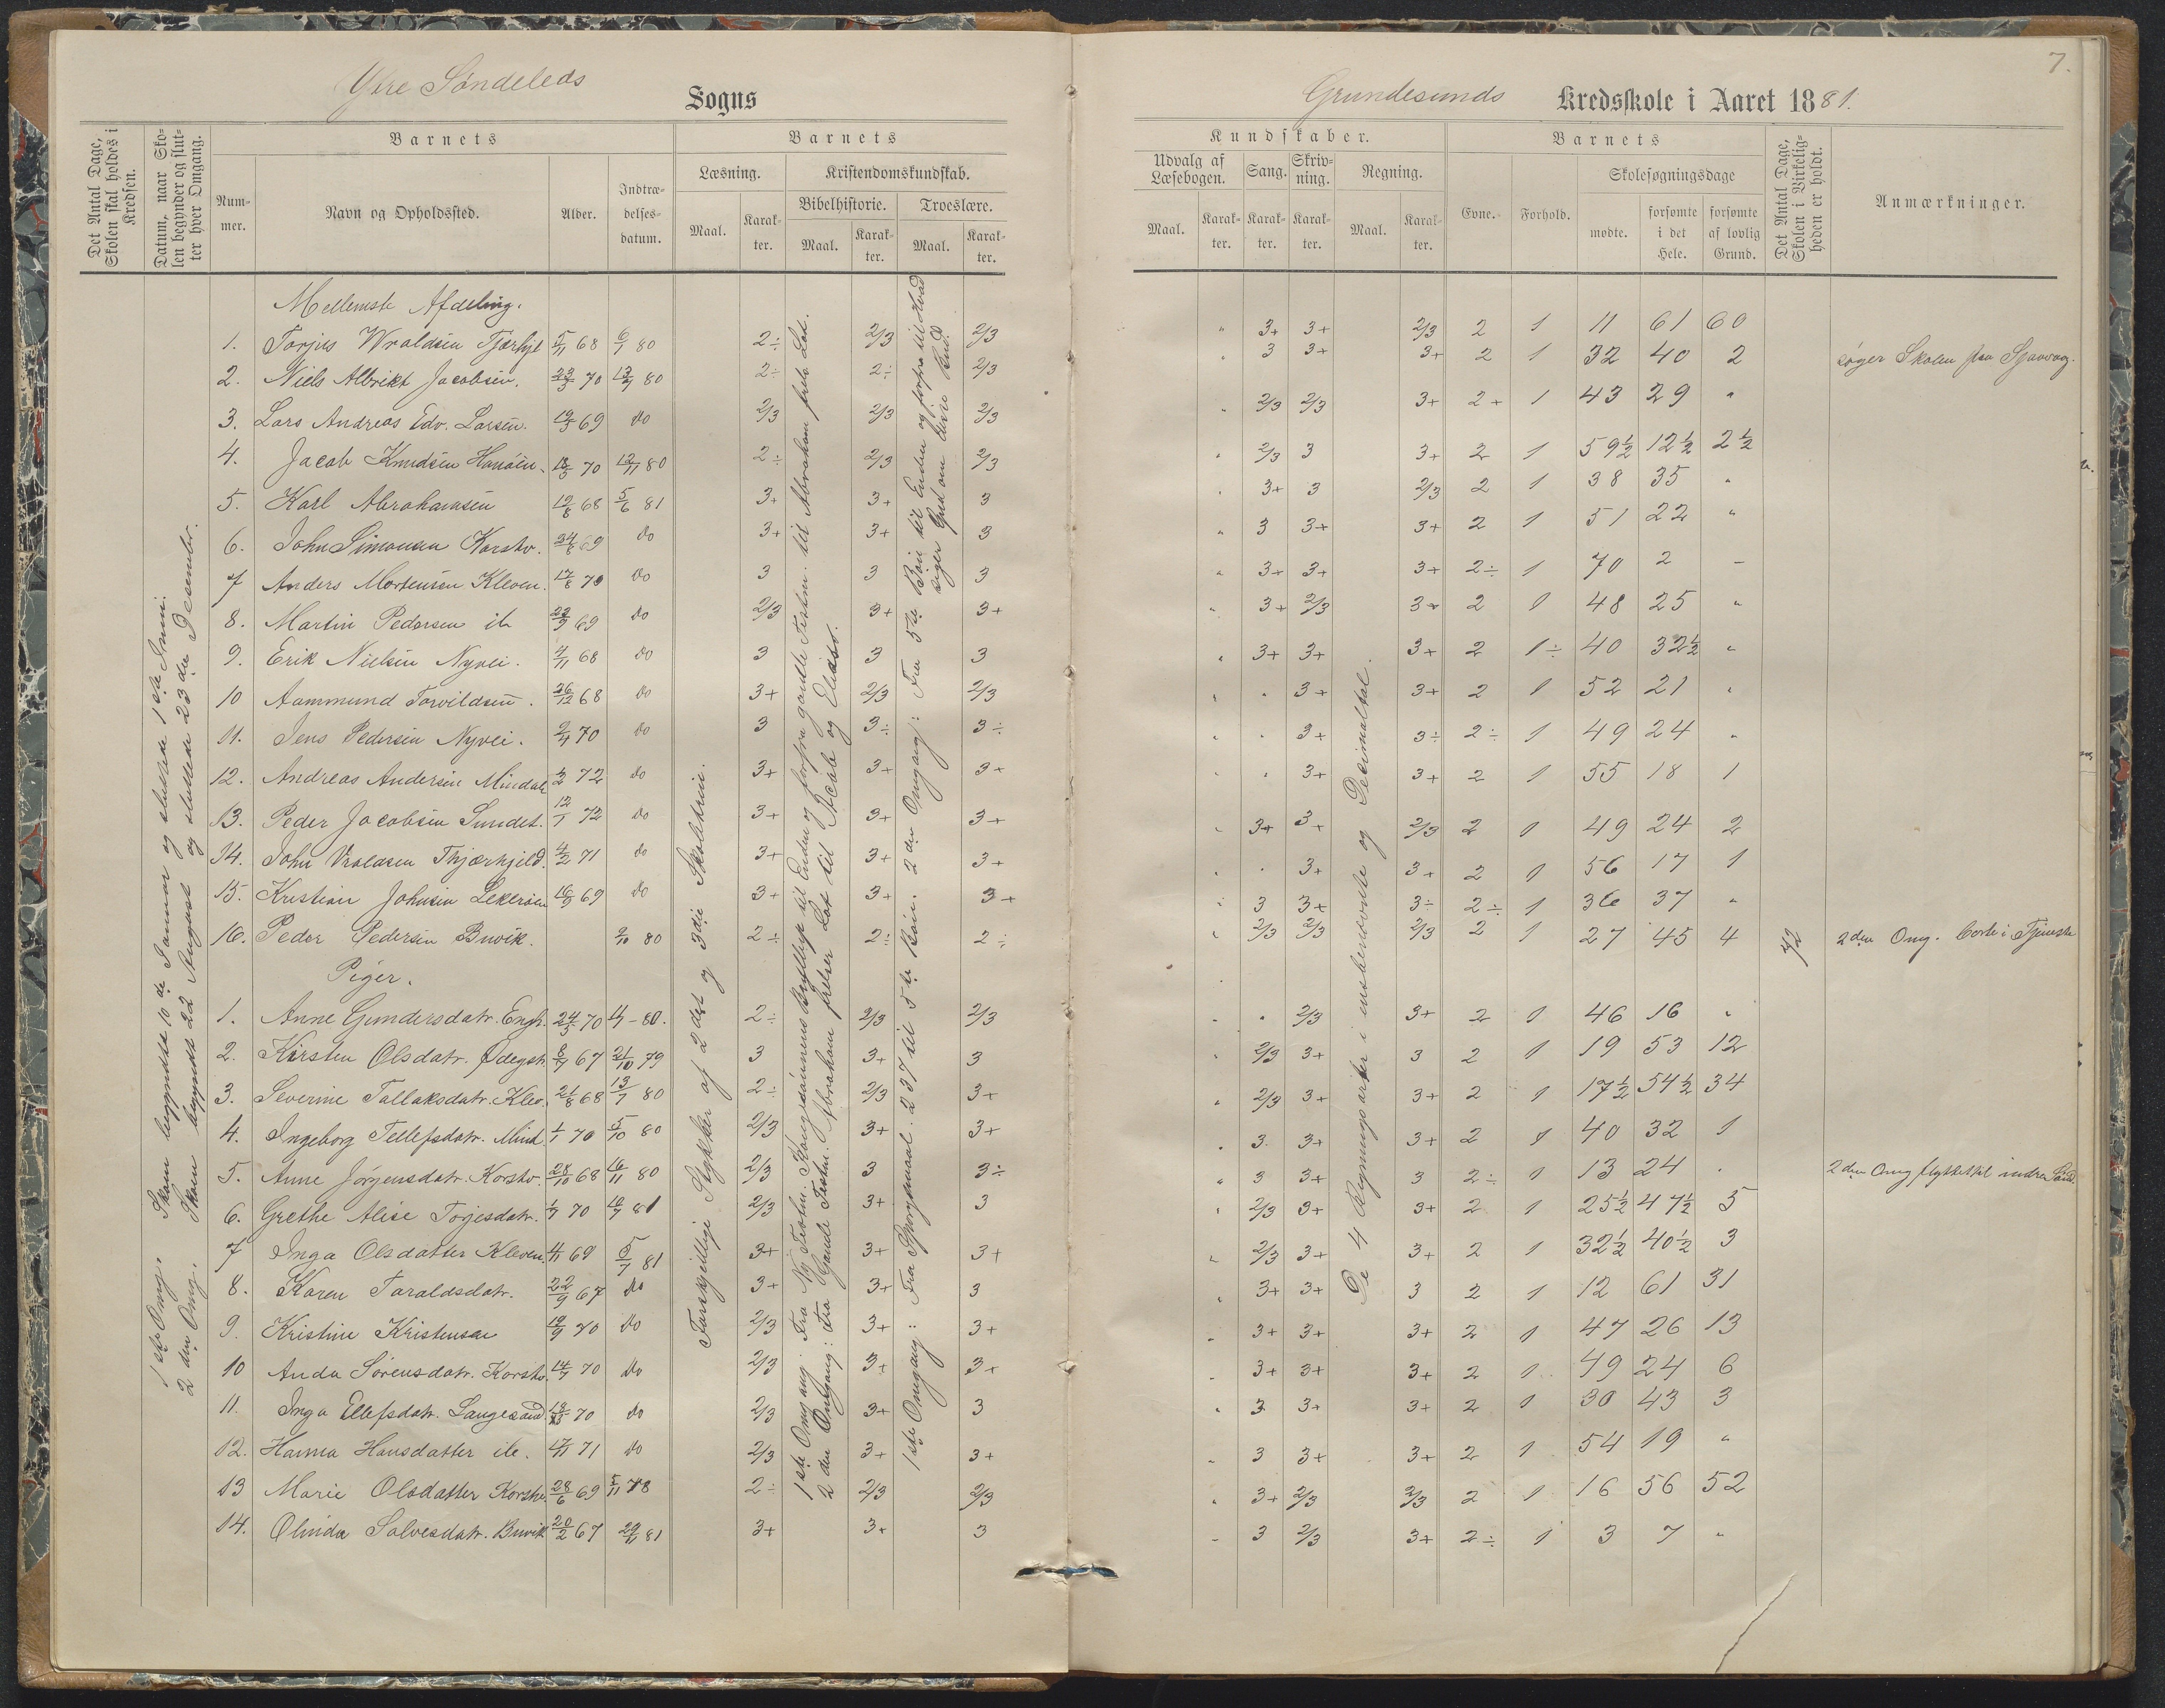 Ytre Søndeleds Sogns
Grundesunds Kredsskole i Aaret 1881.
7.
Det Antal Dage, Skolen skal holdes i Kredsen.
Datum, naar Skolen begynder og slutter hver Omgang.
Barnets
Nummer.
Navn og Opholdssted.
Alder.
Indtrædelsesdatum.
Barnets
Læsning.
Maal.
Karakter.
Kristendomskundskab.
Bibelhistorie.
Maal.
Karakter.
Troeslære.
Maal.
Karakter.
Kundskaber.
Udvalg af Læsebogen.
Maal.
Karakter.
Sang.
Karakter.
Skrivning.
Karakter.
Regning.
Maal.
Karakter.
Barnets
Evne.
Forhold.
Skolesøgningsdage
mødte.
forsømte i det Hele.
forsømte af lovlig Grund.
Det Antal Dage, Skolen i Virkeligheden er holdt.
Anmærkninger.
1ste Omg. Skolen begyndte 10de Januar og sluttede 1ste Juni.
2den Omg. Skolen begyndt 22 August og sluttede 23de Desember.
Forskjellige Stykker af 2det og 3die Skoletrin.
De 4 Regningsarter i ensbenævnte og Decimaltal.
Mellemste Afdeling.
1. Torjus Wroldsen 5/11 68 6/1 80 2÷ 2/3 2/3 " 3+ 3+ 2/3 2 1 11 61 60
2. Niels Albrikt Jacobsen. 23/3 70 13/9 80 2÷ 2÷ 2/3 " 3 3+ 3+ 2 1 32 40 2 søger Skolen fra
3. Lars Andreas Edv. Larsen. 19/3 69 do 2/3 2/3 2/3 " 2/3 2/3 3+ 2+ 1 43 29 "
4. Jacob Knudsen 18/3 70 12/11 80 2÷ 2/3 2/3 " 2/3 3 3+ 2 1 59½ 12½ 2½
5. Karl Abrahamsen 19/8 68 5/6 81 3+ 3+ 3 " 3+ 3 2/3 2 1 38 35 "
6. John Simonsen Korstv. 24/8 69 do 3+ 3+ 3 " 3 3+ 3+ 2 1 51 22 "
7 Anders Mortensen Kleven. 17/8 70 do 3 3 3 " 3+ 3+ 3+ 2÷ 1 70 2 –
8. Martin Pedersen ib 22/9 69 do 2/3 3+ 3+ " 3+ 2/3 3+ 2 1 48 25 "
9. Erik Nielsen Nyvei. 4/11 68 do 3 3 3 " 3+ 3+ 3+ 2 1÷ 40 32½ "
10 Aammund Torvildsen. 26/12 68 do 3+ 2/3 2/3 " " 3+ 3+ 2 1 52 21 "
11. Jens Pedersen Nyvei. 2/4 70 do 3 3÷ 3÷ " " 3+ 3÷ 2÷ 1 49 24 "
12. Andreas Andersen Mindal 4/2 72 do 3+ 3+ 3+ " " 3+ 3+ 2 1 55 18 1
13. Peder Jacobsen Sundet. 12/1 72 do 3+ 3+ 3+ " 3+ 3+ 2/3 2 1 49 24 2
14. John Vraldsen Thjærkjeld. 4/2 71 do 3+ 3+ 3+ " " 3+ 3+ 2 1 56 17 1
15. Kristian Johnsen 16/9 69 do 3+ 3+ 3+ " 3 3+ 3÷ 2÷ 1 36 37 "
16. Peder Pedersen Buvik. 2/10 80 2÷ 2÷ 2÷ " 2/3 2/3 2/3 2 1 27 45 4 72 2den Omg. borte i Tjeneste
Piger.
1. Anne Gundersdatr. 24/5 70 4/7 – 80. 2÷ 2/3 2/3 " " 2/3 3+ 2 1 46 16 "
2. Kirsten Olsdatr. Ødegst. 8/9 67 21/10 79 3 3+ 3 " 2/3 3+ 3 2 1 19 53 12
3. Severine Tallaksdatr. Klev. 21/8 68 13/7 80 2÷ 2/3 3+ " 2/3 3+ 3+ 2 1 17½ 54½ 34
4. Ingeborg Tellefsdatr. Mind 1/1 70 5/10 80 2/3 3+ 3+ " 3 3+ 3+ 2 1 40 32 1
5. Anne Jørgensdatr. Korstv. 28/10 68 16/11 80 2/3 3 3÷ " 3 3+ 3 2÷ 1 13 24 " 2den Omg flykket til indre Sønd.
6. Grethe Alise Torjesdatr. 1/7 70 10/7 81 2/3 3+ 3 " 2/3 3+ 3+ 2 1 25½ 47½ 5
7 Inga Olsdatter Kleven 4/11 69 5/7 81 3+ 3+ 3+ " 2/3 3+ 3+ 2 1 32½ 40½ 3
8. Karen Taraldsdatr. 22/9 67 do 3+ 3+ 3 " 3+ 3+ 3 2 1 12 61 31
9. Kristine Kristensen 19/9 70 do 2/3 3+ 3+ " 3+ 3+ 3+ 2 1 47 26 13
10 Anda Sørensdatr. Korstv. 14/7 70 do 2/3 3+ 3+ " 3+ 3+ 3+ 2 1 49 24 6
11. Inga Ellefsdatr. Langesand 70 do 2/3 3+ 3 " 3 3+ 3+ 2 1 30 43 3
12. Hanna Hansdatter ib. 71 do 2/3 3+ 3+ " 3 3+ 3+ 2 1 54 19 "
13 Marie Olsdatter Korstv. 28/6 69 5/11 78 2÷ 2/3 2/3 " 3+ 2/3 2/3 2 1 16 56 52
14. Olinda Salvesdatr. Buvik 20/2 67 29/11 81 3+ 3+ 3 " 3 2/3 3+ 2÷ 1 3 7 "
1ste Omgang: Fra Ny Testm. Kongesønnens Bryllup til Enden og forfra gamle Testm. til Abraham frels Lot.
2den Omgang: Fra Gamle Testm. Abraham frelser Lot til Acab og Elias.
1ste Omgang: Fra Spørgsmaal 237 til 5te Bøn. 2den Omgang: Fra 5te Bøn til Enden og forfra til Hvad siger Gud om disse Bud.